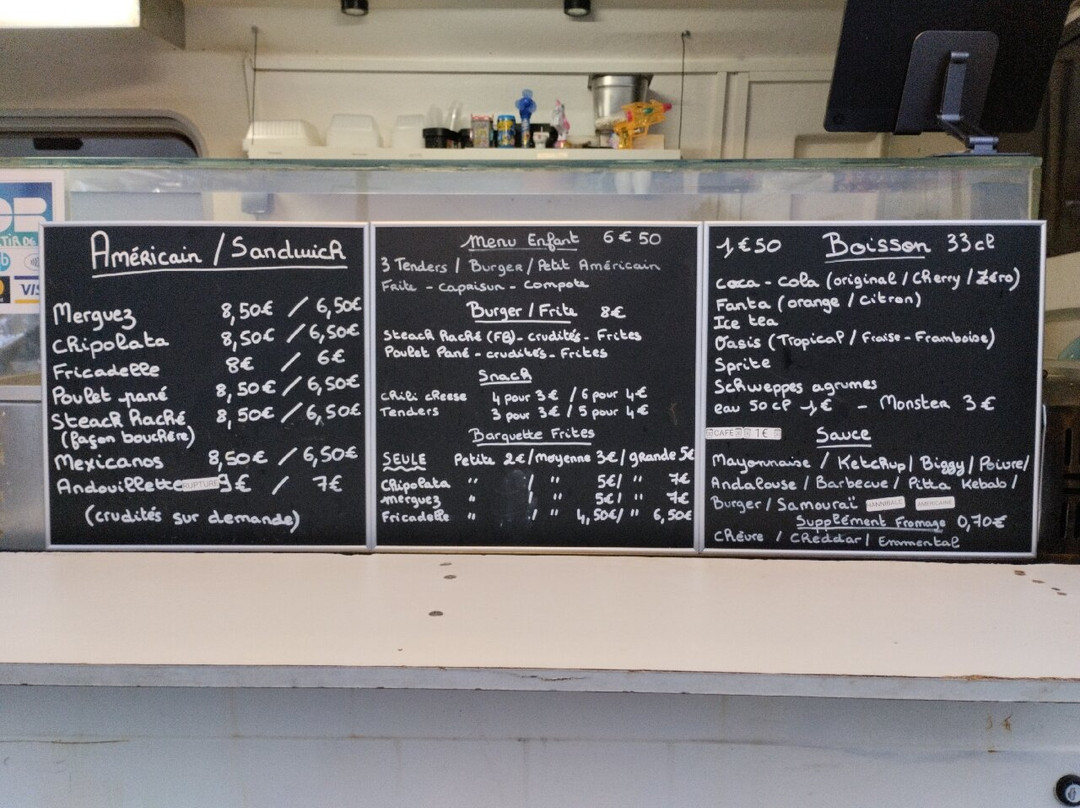 OR
TIR DE
VIS
Américain / Sandwich
Merguez 8,50€ / 6,50€
Chipolata 8,50€ / 6,50€
Fricadelle 8€ / 6€
Poulet pané 8,50€ / 6,50€
Steack Haché 8,50€ / 6,50€
(façon bouchère)
Mexicanos 8,50€ / 6,50€
Andouillette RUPTURE 9€ / 7€
(crudités sur demande)
Menu Enfant 6€50
3 Tenders / Burger / Petit Américain
Frite - Caprisun - Compote
Burger / Frite 8€
Steack Haché (FB) - crudités - Frites
Poulet Pané - crudités - Frites
Snack
Chili cheese 4 pour 3€ / 6 pour 4€
Tenders 3 pour 3€ / 5 pour 4€
Barquette Frites
SEULE Petite 2€ / moyenne 3€ / grande 5€
Chipolata " / " 5€ / " 7€
merguez " / " 5€ / " 7€
Fricadelle " / " 4,50€ / " 6,50€
1€50 Boisson 33cl
coca - cola (original / Cherry / Zéro)
Fanta (orange / citron)
Ice tea
Oasis (Tropical / Fraise - Framboise)
Sprite
Schweppes agrumes
eau 50cl 1€ - Monster 3€
CAFE 1€
Sauce
Mayonnaise / Ketchup / Biggy / Poivre /
Andalouse / Barbecue / Pitta Kebab /
Burger / Samouraï HANNIBALE AMERICAINE
Supplément Fromage 0,70€
Chèvre / Cheddar / Emmental